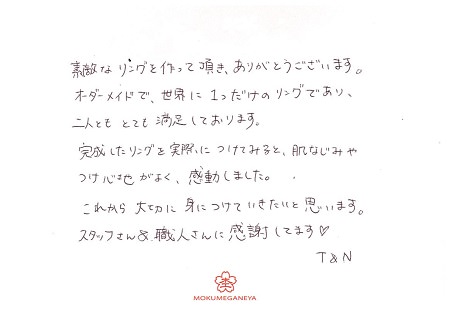 素敵なリングを作って頂き、ありがとうございます。
オーダーメイドで、世界に1つだけのリングであり、
二人とも とても 満足しております。
完成したリングを実際につけてみると、肌なじみや
つけ心地がよく、感動しました。
これから 大切に 身につけていきたいと思います。
スタッフさん&職人さんに感謝してます♡
T&N
MOKUMEGANEYA